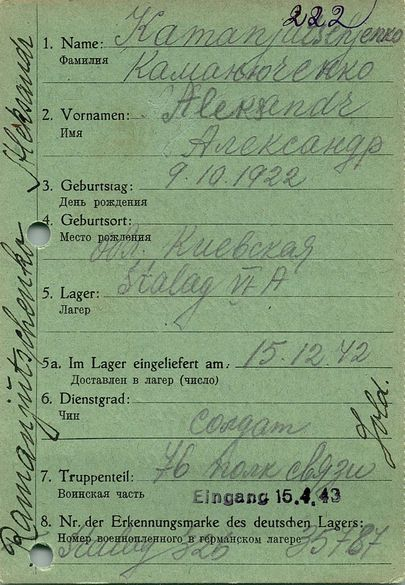 222
1. Name:
Фамилия
Каманюченко
2. Vornamen: Alexandr
Имя
Александр
3. Geburtstag: 9.10.1922
День рождения
4. Geburtsort:
Место рождения
Киевская
5. Lager: Stalag VI A
Лагер
5a. Im Lager eingeliefert am: 15.12.42
Доставлен в лагер (число)
6. Dienstgrad:
Чин
солдат
7. Truppenteil: 76 полк связи
Воинская часть
Eingang 15.4.43
8. Nr. der Erkennungsmarke des deutschen Lagers:
Номер военнопленного в германском лагере
Stalag 326
Ramanjutschenko
Sold.